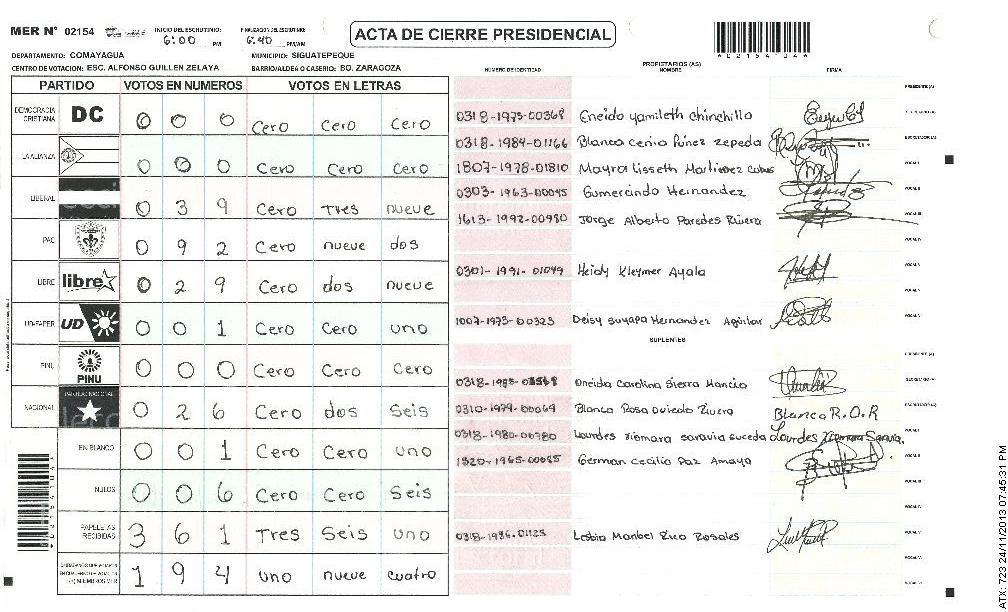 MER Nº 02154 INICIO DEL ESCRUTINIO: 6:00 PM FINALIZACION DEL ESCRUTINIO: 6:40 PM/AM
ACTA DE CIERRE PRESIDENCIAL
DEPARTAMENTO: COMAYAGUA MUNICIPIO: SIGUATEPEQUE
CENTRO DE VOTACION: ESC. ALFONSO GUILLEN ZELAYA BARRIO/ALDEA O CASERIO: BO. ZARAGOZA
PARTIDO VOTOS EN NUMEROS VOTOS EN LETRAS
DEMOCRACIA CRISTIANA DC 0 0 0 Cero Cero Cero
LA ALIANZA 0 0 0 Cero Cero Cero
LIBERAL 0 3 9 Cero Tres nueve
PAC 0 9 2 Cero nueve dos
LIBRE libre 0 2 9 Cero dos nueve
UD-FAPER UD 0 0 1 Cero Cero uno
PINU PINU 0 0 0 Cero Cero Cero
NACIONAL 0 2 6 Cero dos Seis
EN BLANCO 0 0 1 Cero Cero uno
NULOS 0 0 6 Cero Cero Seis
PAPELETAS RECIBIDAS 3 6 1 Tres Seis uno
1 9 4 uno nueve cuatro
NUMERO DE IDENTIDAD PROPIETARIOS (AS) NOMBRE FIRMA
PRESIDENTE (A)
0318-1975-00368 Eneida yamileth chinchilla SECRETARIO (A)
0318-1984-01166 Blanca Cenia Púnez Zepeda ESCRUTADOR (A)
1807-1978-01810 Mayra Lisseth Martinez Cubas VOCAL I
0303-1963-00045 Gumercindo Hernandez VOCAL II
1613-1992-00980 Jorge Alberto Paredes Rivera VOCAL III
VOCAL IV
0301-1991-01049 Heidy Kleymer Ayala VOCAL V
1007-1973-00323 Deisy suyapa Hernandez Aguilar
SUPLENTES
PRESIDENTE (A)
Oneida Carolina Sierra Mancio SECRETARIO (A)
0310-1979-00069 Blanca Rosa Oviedo Rivera Blanca R.O.R ESCRUTADOR (A)
0318-1980-00780 Lourdes xiomara saravia suceda Lourdes Xiomara Saravia. VOCAL I
1520-1965-00085 German Cecilio Paz Amaya VOCAL II
VOCAL III
VOCAL IV
0318-1986-01125 Lesbia Maribel Rico Rosales VOCAL V
ATX: 723 24/11/2013 07:45:31 PM